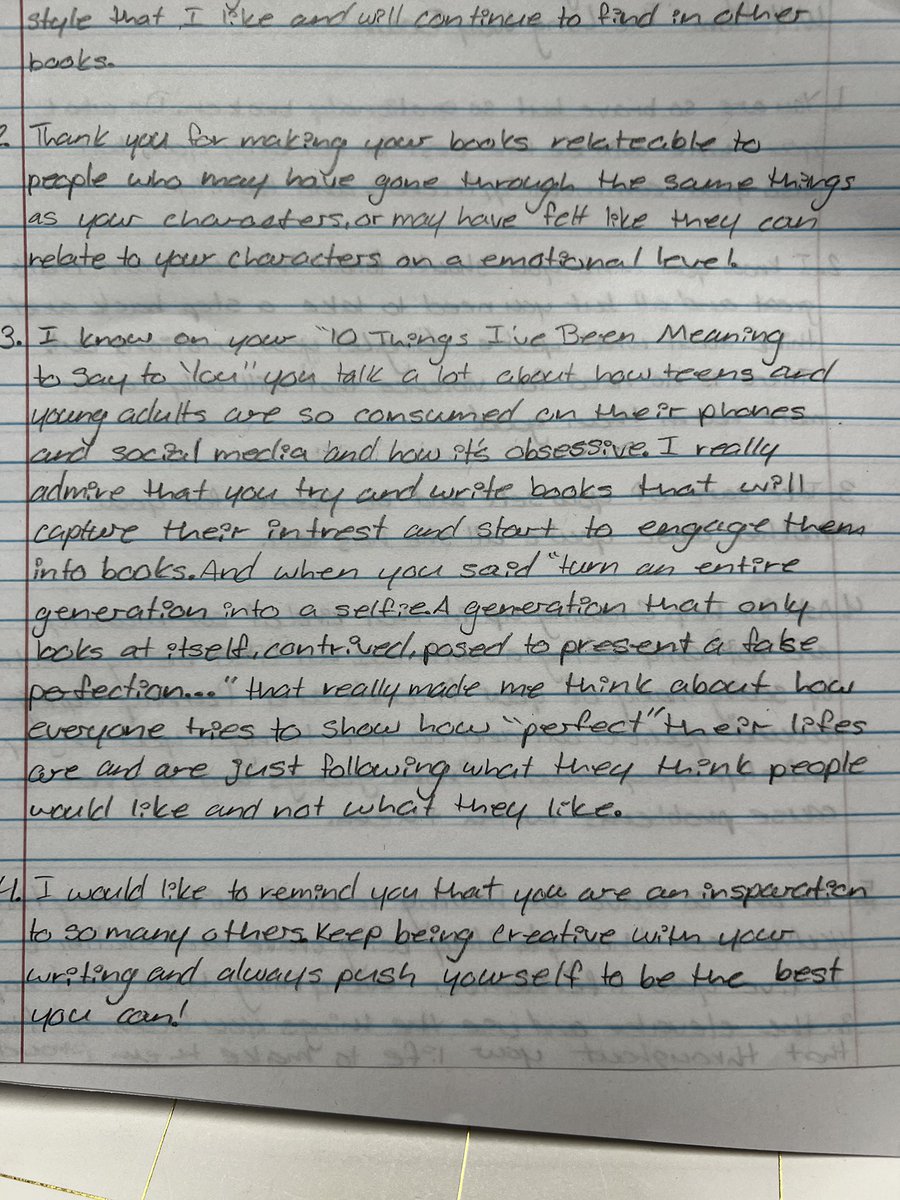 style that I like and will continue to find in other
books.
2. Thank you for making your books relateable to
people who may have gone through the same things
as your characters, or may have felt like they can
relate to your characters on a emotional level.
3. I know on your "10 Things I've Been Meaning
to Say to You" you talk a lot about how teens and
young adults are so consumed on their phones
and social media and how it's obsessive. I really
admire that you try and write books that will
capture their intrest and start to engage them
into books. And when you said "turn an entire
generation into a selfie. A generation that only
looks at itself, contrived, posed to present a false
perfection..." that really made me think about how
everyone tries to show how "perfect" their lifes
are and are just following what they think people
would like and not what they like.
4. I would like to remind you that you are an insparation
to so many others. Keep being creative with your
writing and always push yourself to be the best
you can!